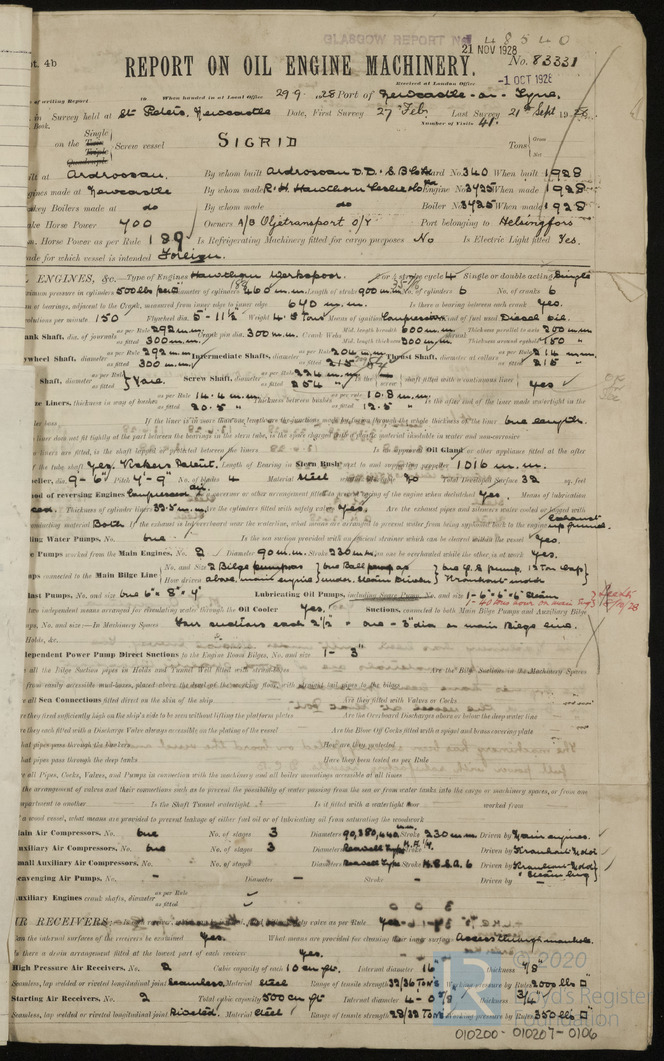 GLASGOW REPORT No 48540
21 NOV 1928
pt. 4b
REPORT ON OIL ENGINE MACHINERY.
No. 83331
Received at London Office
-1 OCT 1928
of writing Report 19 When handed in at Local Office 29.9.1928 Port of Newcastle-on-Tyne.
in Survey held at St Peters, Newcastle Date, First Survey 27 Feb. Last Survey 21st Sept 19
Book. Number of Visits 41.
on the Single Twin Triple Quadruple Screw vessel
SIGRID
Tons Gross Net
ilt at Ardrossan. By whom built Ardrossan D.D. & S.B. Co Ltd Yard No. 340 When built 1928
gines made at Newcastle By whom made R. H. Hawthorn Leslie & Co Ltd Engine No. 3725 When made 1928
nkey Boilers made at do By whom made do Boiler No. 3725 When made 1928
ake Horse Power 700 Owners A/B Oljetransport O/Y Port belonging to Helsingfors
m. Horse Power as per Rule 189 Is Refrigerating Machinery fitted for cargo purposes No Is Electric Light fitted Yes.
ade for which vessel is intended Foreign.
L ENGINES, &c.—Type of Engines Hawthorn Werkspoor. or 4 stroke cycle 4 Single or double acting Single
ximum pressure in cylinders 500 lbs per □" Diameter of cylinders 460 m.m. Length of stroke 900 m.m. No. of cylinders 6 No. of cranks 6
n of bearings, adjacent to the Crank, measured from inner edge to inner edge 640 m.m. Is there a bearing between each crank Yes.
volutions per minute 150 Flywheel dia. 5'-11½" Weight Means of ignition Compression Kind of fuel used Diesel oil.
ank Shaft, dia. of journals as per Rule 292 m.m. as fitted 300 m.m. Crank pin dia. 300 m.m. Crank Webs Mid. length breadth 600 m.m. Thickness parallel to axis 200 m.m.
Mid. length thickness 200 m.m. Thickness around eyehole 150
ywheel Shaft, diameter as per Rule 292 m.m. as fitted 300 m.m. Intermediate Shafts, diameter as per Rule 204 m.m. as fitted 215 Thrust Shaft, diameter at collars as per Rule 214 m.m. as fitted 215
Shaft, diameter as per Rule as fitted None. Screw Shaft, diameter as per Rule 224 m.m. as fitted 254 Is the screw shaft fitted with a continuous liner Yes
ze Liners, thickness in way of bushes as per Rule 14.4 m.m. as fitted 20.5 Thickness between bushes as per Rule 10.8 m.m. as fitted 12.5 Is the after end of the liner made watertight in the
eller boss If the liner is in more than one length are the junctions made by fusion through the whole thickness of the liner One length.
liner does not fit tightly at the part between the bearings in the stern tube, is the space charged with a plastic material insoluble in water and non-corrosive
Oil Gland or other appliance fitted at the after
f the tube shaft Yes. Vickers Patent. Length of Bearing in Stern Bush next to and supporting propeller 1016 m.m.
eller, dia. 9'-6" Pitch 7'-9" No. of blades 4 Material Steel Total Developed Surface 32 sq. feet
od of reversing Engines Compressed air Is a governor or other arrangement fitted to prevent racing of the engine when declutched Yes. Means of lubrication
Thickness of cylinder liners Are the cylinders fitted with safety valves Yes. Are the exhaust pipes and silencers water cooled or lagged with
conducting material Both If the exhaust is led overboard near the waterline, what means are arranged to prevent water from being syphoned back to the engine Exhaust up funnel.
ling Water Pumps, No. One. Is the sea suction provided with an efficient strainer which can be cleared within the vessel Yes.
e Pumps worked from the Main Engines, No. 2 Diameter 90 m.m. Stroke 230 m.m. Can one be overhauled while the other is at work Yes.
ps connected to the Main Bilge Line No. and Size 2 Bilge pumps as
How driven above, main engine
last Pumps, No. and size One 6" × 8" × 4" Lubricating Oil Pumps, including Spare Pump, No. and size 1 - 6" × 6" × 6" Steam
two independent means arranged for circulating water through the Oil Cooler Yes. Suctions, connected to both Main Bilge Pumps and Auxiliary Bilge
ps, No. and size:—In Machinery Spaces Four suctions each 2½" & one - 3" dia on main Bilge line.
Holds, &c.
dependent Power Pump Direct Suctions to the Engine Room Bilges, No. and size 1 - 3"
all the Bilge Suction pipes in Holds and Tunnel Well fitted with strum-boxes Are the Bilge Suctions in the Machinery Spaces
from easily accessible mud-boxes, placed above the level of the working floor, with straight tail pipes to the bilges
all Sea Connections fitted direct on the skin of the ship Are they fitted with Valves or Cocks
they fixed sufficiently high on the ship's side to be seen without lifting the platform plates Are the Overboard Discharges above or below the deep water line
they each fitted with a Discharge Valve always accessible on the plating of the vessel Are the Blow Off Cocks fitted with a spigot and brass covering plate
hat pipes pass through the bunkers How are they protected
hat pipes pass through the deep tanks Have they been tested as per Rule
all Pipes, Cocks, Valves, and Pumps in connection with the machinery and all boiler mountings accessible at all times
the arrangement of valves and their connections such as to prevent the possibility of water passing from the sea or from water tanks into the cargo or machinery spaces, or from one
partment to another Is the Shaft Tunnel watertight Is it fitted with a watertight door worked from
a wood vessel, what means are provided to prevent leakage of either fuel oil or of lubricating oil from saturating the woodwork
ain Air Compressors, No. One No. of stages 3 Diameters 90,380,440 m.m. Stroke 230 m.m. Driven by Main engines.
uxiliary Air Compressors, No. One No. of stages 3 Diameters Reavell Type Stroke Driven by
mall Auxiliary Air Compressors, No. No. of stages Diameters Reavell Type Stroke Driven by
cavenging Air Pumps, No. - Diameter - Stroke - Driven by -
uxiliary Engines crank shafts, diameter as per Rule as fitted
IR RECEIVERS:
an the internal surfaces of the receivers be examined Yes. What means are provided for cleaning their inner surfaces Access through manhole.
there a drain arrangement fitted at the lowest part of each receiver Yes.
High Pressure Air Receivers, No. 2 Cubic capacity of each 10 cu. ft. Internal diameter 16" thickness 7/8
Seamless, lap welded or riveted longitudinal joint Seamless, Material Steel Range of tensile strength 32/36 Tons Working pressure by Rules 2000 lbs □
Starting Air Receivers, No. 2 Total cubic capacity 500 cu ft Internal diameter 4'-0⅝ thickness 3/4"
Seamless, lap welded or riveted longitudinal joint Riveted. Material Steel Range of tensile strength 28/32 Tons Working pressure by Rules 350 lbs □
© 2020
LR
Lloyd's Register
Foundation
010200-010207-0106